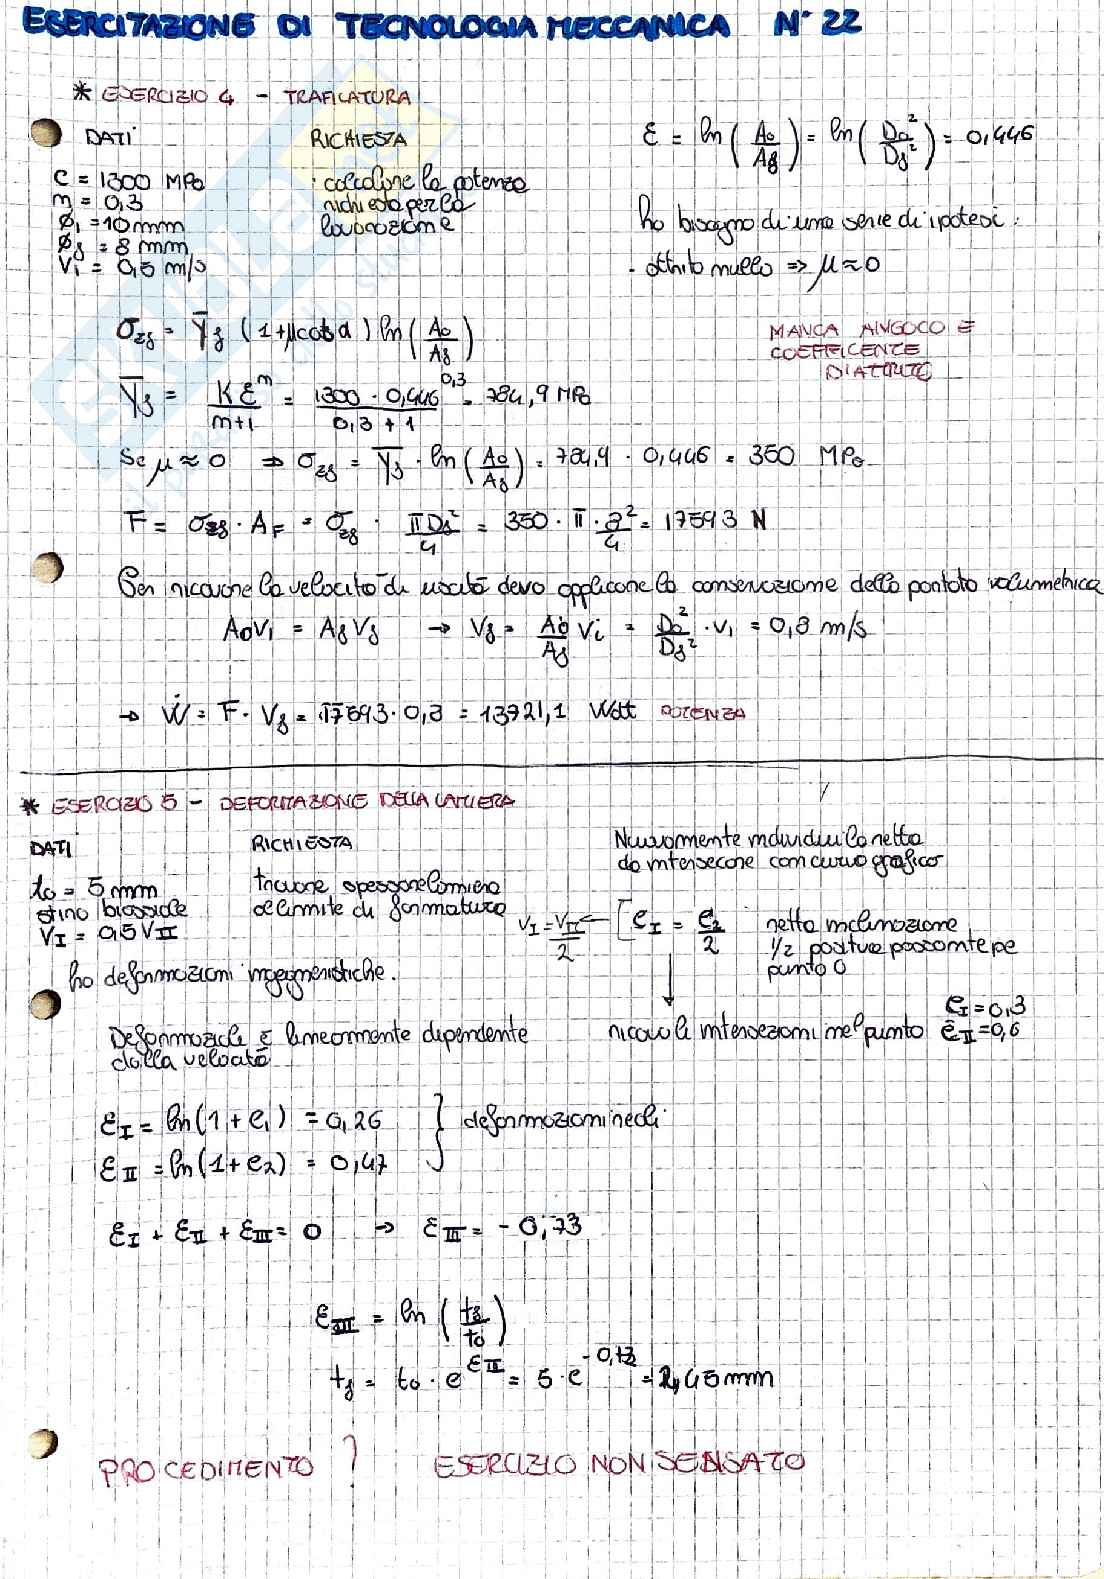 ESERCITAZIONE DI TECNOLOGIA MECCANICA N° 22
* ESERCIZIO 4 - TRAFILATURA
DATI
C = 1300 MPa
m = 0,3
φi = 10 mm
φf = 8 mm
Vi = 0,5 m/s
RICHIESTA
· calcolare la potenza
richiesta per la
lavorazione
ε = ln (A0/Af) = ln (D0²/Df²) = 0,446
ho bisogno di una serie di ipotesi :
- attrito nullo => μ ≈ 0
MANCA ANGOLO E
COEFFICENTE
DI ATTRITO
σzf = Ȳf (1 + μ cot α) ln (A0/Af)
Ȳf = K ε^m / m+1 = 1300 · 0,446^0,3 / 0,3 + 1 = 784,9 MPa
Se μ ≈ 0 => σzf = Ȳf · ln (A0/Af) = 784,9 · 0,446 = 350 MPa
F = σzf · AF = σzf · π Df²/4 = 350 · π · 8²/4 = 17593 N
Per ricavare la velocità di uscita devo applicare la conservazione della portata volumetrica
A0 Vi = Af Vf → Vf = A0/Af Vi = D0²/Df² · Vi = 0,8 m/s
→ Ẇ = F · Vf = 17593 · 0,8 = 13721,1 Watt POTENZA
* ESERCIZIO 5 - DEFORMAZIONE DELLA LAMIERA
DATI
t0 = 5 mm
stiro biassiale
VI = 0,5 VII
RICHIESTA
trovare spessore lamiera
al limite di formatura
Nuovamente individui la retta
da intersecare con curva grafico
VI = VII/2 ← [ eI = e2/2
retta inclinazione
1/2 positiva passante pe
punto 0
ho deformazioni ingegneristiche.
↓
Deformazione è linearmente dipendente
dalla velocità
ricavo le intersezioni nel punto eI = 0,3
eII = 0,6
εI = ln (1 + e1) = 0,26
εII = ln (1 + e2) = 0,47
} deformazioni reali
εI + εII + εIII = 0 → εIII = - 0,73
εIII = ln (tf/t0)
tf = t0 · e^εII = 5 · e^-0,73 = 2,45 mm
PROCEDIMENTO ?
ESERCIZIO NON SENSATO